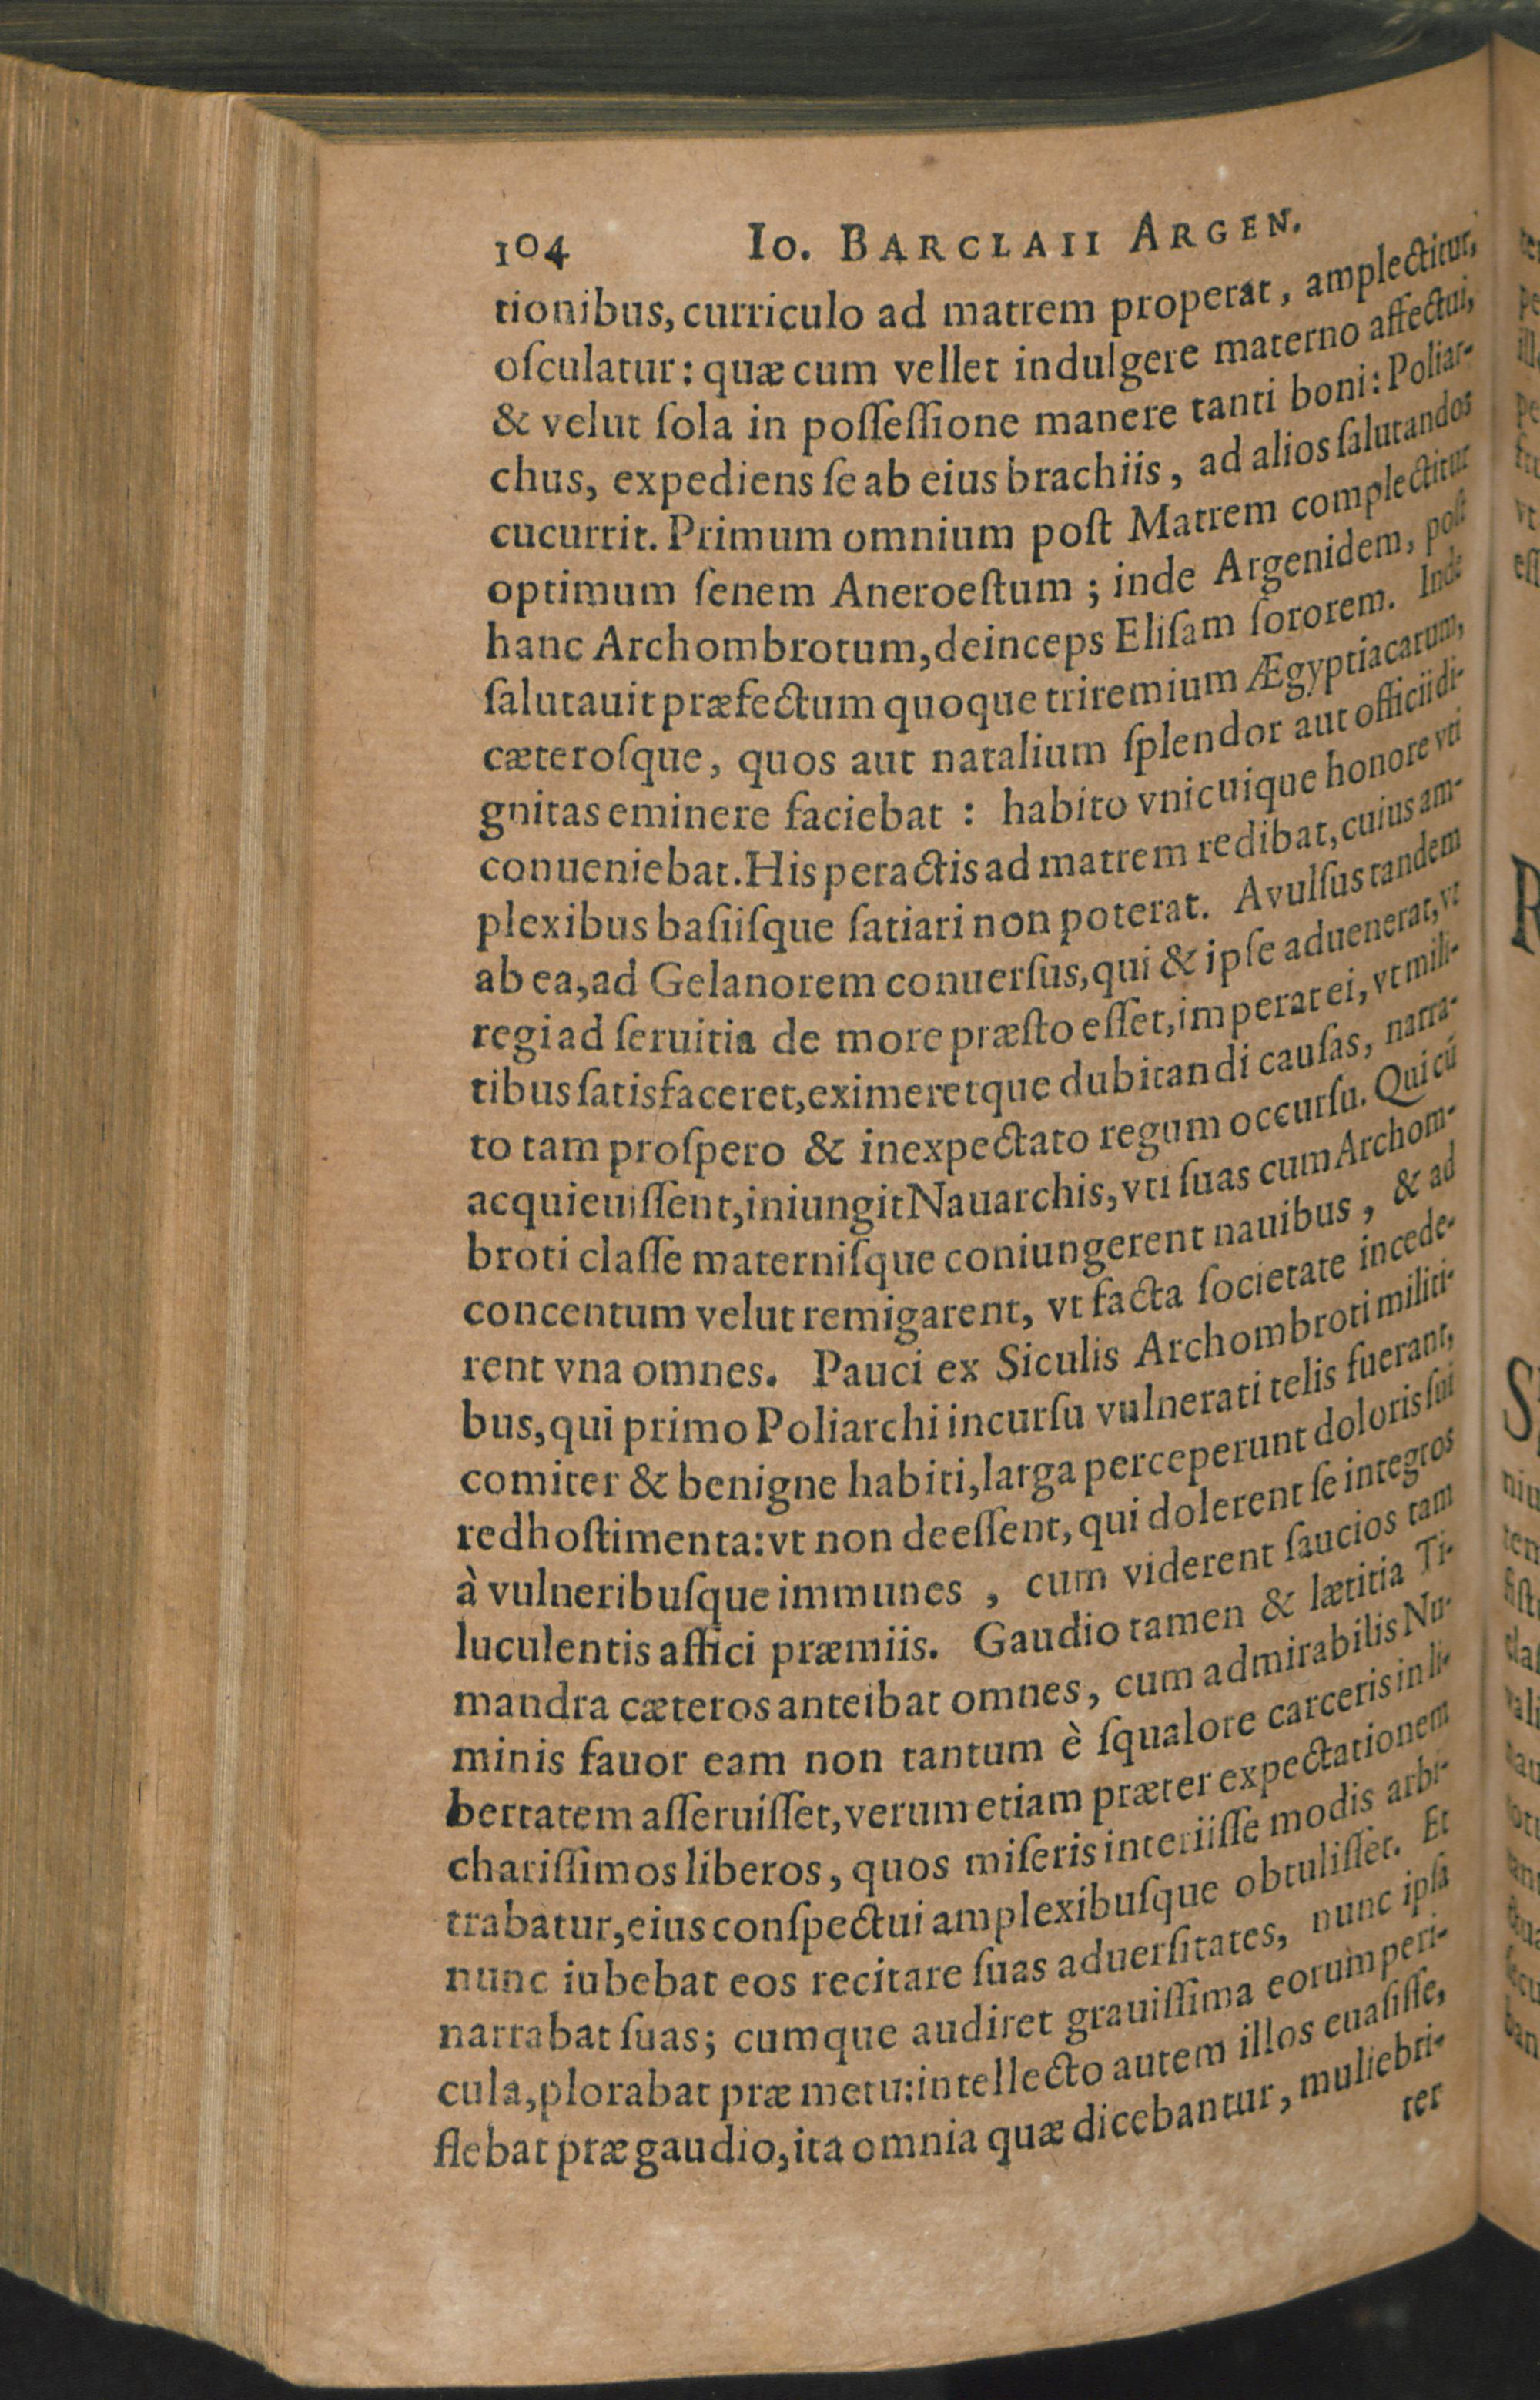 104 Io. BARCLAII ARGEN.
tionibus, curriculo ad matrem properat, amplectitur,
oſculatur: quæ cum vellet indulgere materno affectui,
& velut ſola in poſſeſſione manere tanti boni: Poliar-
chus, expediens ſe ab eius brachiis, ad alios ſalutandos
cucurrit. Primum omnium poſt Matrem complectitur
optimum ſenem Aneroeſtum; inde Argenidem, poſt
hanc Archombrotum, deinceps Eliſam ſororem. Inde
ſalutauit præfectum quoque triremium Ægyptiacarum,
cæteroſque, quos aut natalium ſplendor aut officii di-
gnitas eminere faciebat : habito vnicuique honore vti
conueniebat. His peractis ad matrem redibat, cuius am-
plexibus baſiiſque ſatiari non poterat. Avulſus tandem
ab ea, ad Gelanorem conuerſus, qui & ipſe aduenerat, vt
regi ad ſeruitia de more præſto eſſet, imperat ei, vt mili-
tibus ſatisfaceret, eximeretque dubitandi cauſas, narra-
to tam proſpero & inexpectato regum occurſu. Qui cú
acquieuiſſent, iniungit Nauarchis, vti ſuas cum Archom-
broti claſſe materniſque coniungerent nauibus, & ad
concentum velut remigarent, vt facta ſocietate incede-
rent vna omnes. Pauci ex Siculis Archombroti militi-
bus, qui primo Poliarchi incurſu vulnerati telis fuerant,
comiter & benigne habiti, larga perceperunt doloris ſui
redhoſtimenta: vt non deeſſent, qui dolerent ſe integros
à vulneribuſque immunes, cum viderent ſaucios tam
luculentis affici præmiis. Gaudio tamen & lætitia Ti-
mandra cæteros anteibat omnes, cum admirabilis Nu-
minis fauor eam non tantum è ſqualore carceris in li-
bertatem aſſeruiſſet, verum etiam præter expectationem
chariſſimos liberos, quos miſeris interiiſſe modis arbi-
trabatur, eius conſpectui amplexibuſque obtuliſſet. Et
nunc iubebat eos recitare ſuas aduerſitates, nunc ipſa
narrabat ſuas; cumque audiret grauiſſima eorum peri-
cula, plorabat præ metu: intellecto autem illos euaſiſſe,
flebat præ gaudio, ita omnia quæ dicebantur, muliebri-
ter